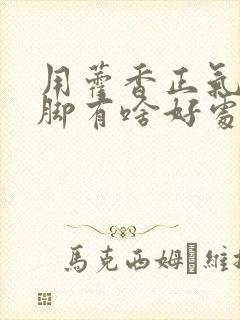 用藿香正氣
脚有啥好處
馬克西姆·維